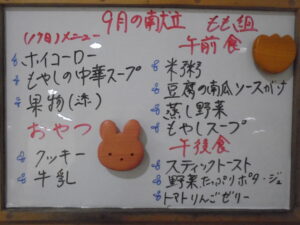 9月の献立
(17日)メニュー
ホイコーロー
もやしの中華スープ
果物(漆)
おやつ
クッキー
牛乳
もも組
午前食
米粥
豆腐の南瓜ソースがけ
蒸し野菜
もやしスープ
午後食
スティックトースト
野菜たっぷりポタージュ
トマトりんごゼリー